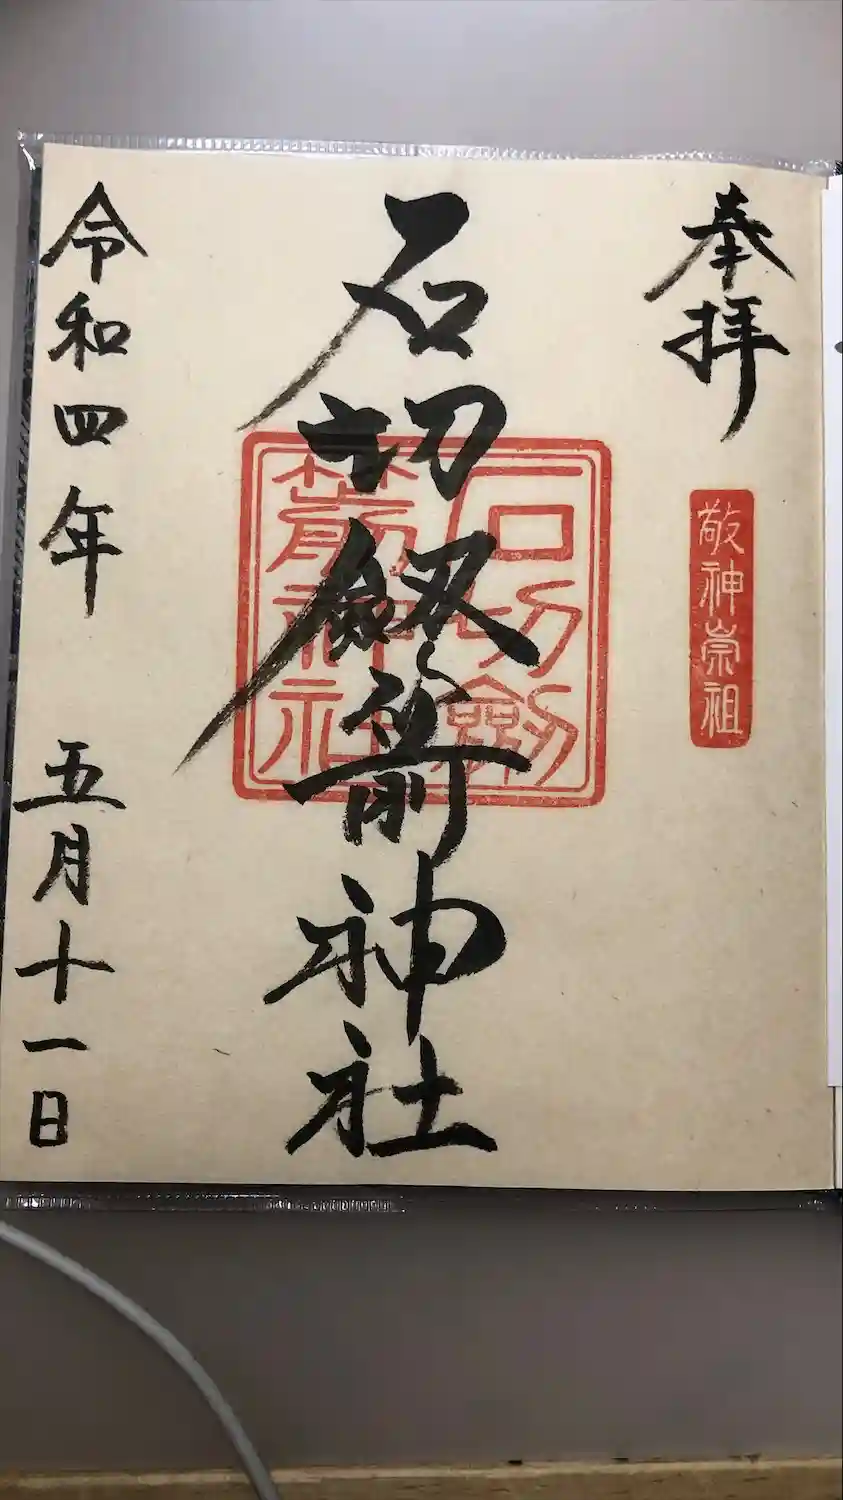 奉拝
敬神崇祖
石切劔箭神社
石切劔
箭神社
令和四年 五月十一日